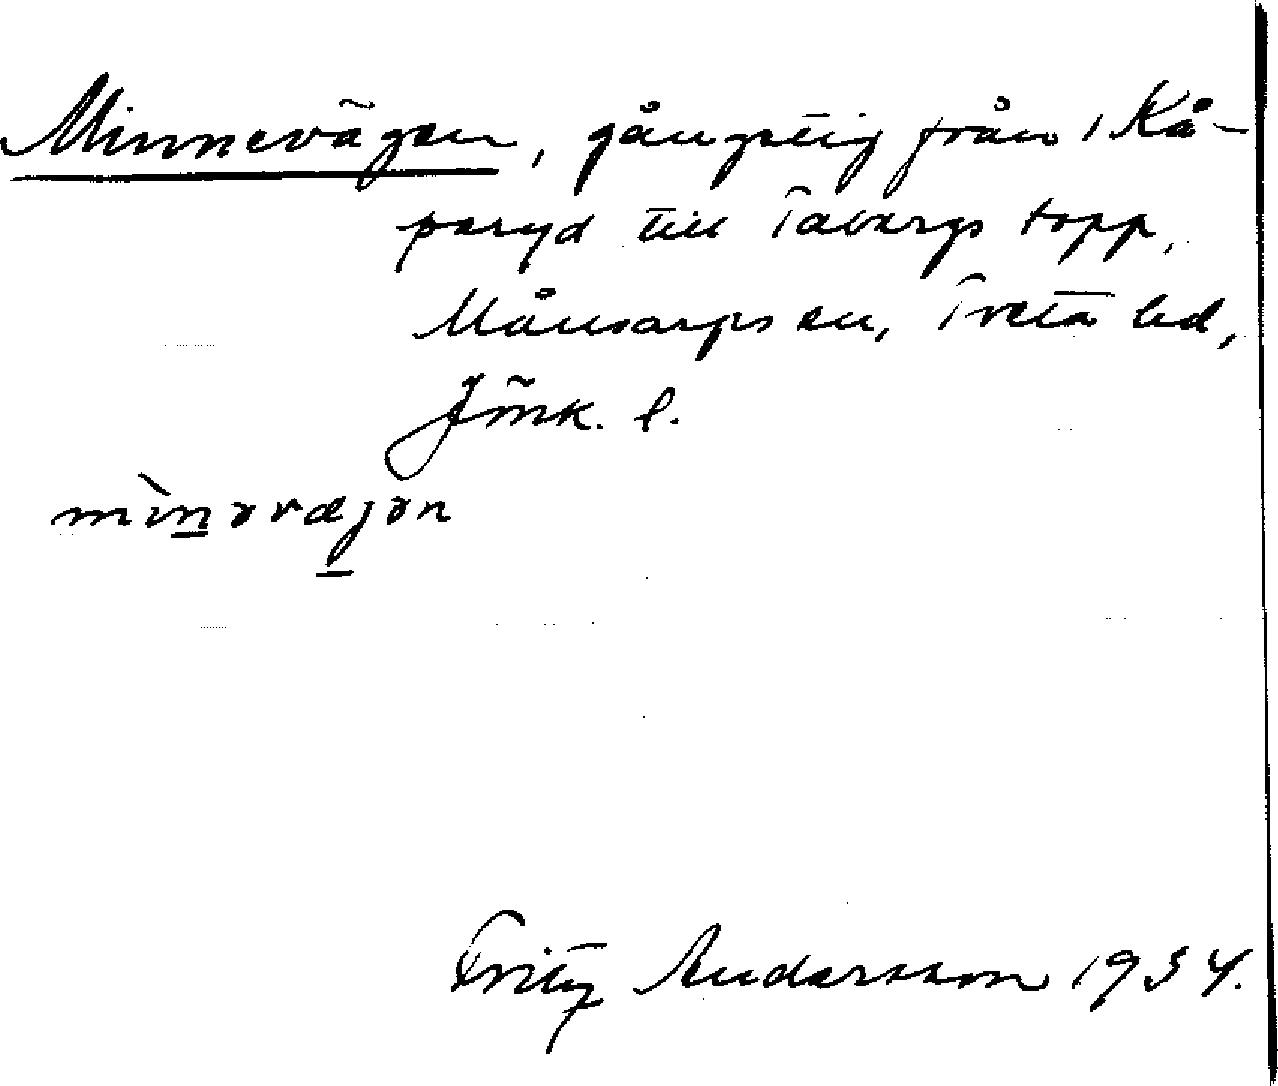 Minnevägen, gångstig från Kå-
peryd till Tabergs topp,
Månsarps sn, Tveta hd,
Jönk. l.
mìnəvæjən
Fritz Andersson 1934.